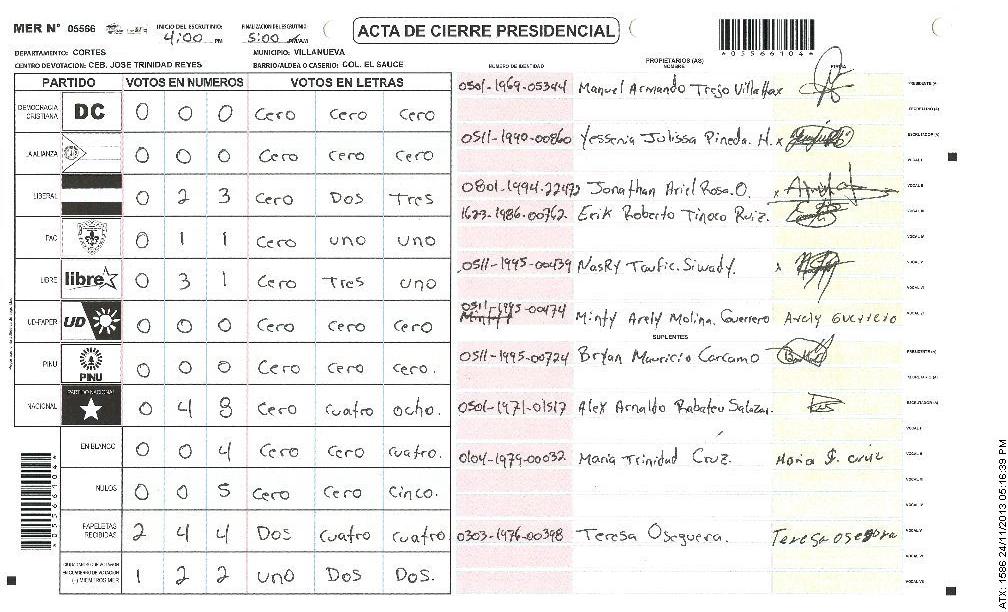 MER N° 05566
INICIO DEL ESCRUTINIO: 4:00 PM
FINALIZACION DEL ESCRUTINIO 5:00
ACTA DE CIERRE PRESIDENCIAL
*05566104*
DEPARTAMENTO: CORTES
MUNICIPIO: VILLANUEVA
CENTRO DEVOTACION: CEB. JOSE TRINIDAD REYES
BARRIO/ALDEA O CASERIO: COL. EL SAUCE
PARTIDO VOTOS EN NUMEROS VOTOS EN LETRAS
DEMOCRACIA CRISTIANA DC 0 0 0 Cero Cero Cero
LA ALIANZA 0 0 0 Cero Cero Cero
LIBERAL 0 2 3 Cero Dos Tres
PAC 0 1 1 Cero uno uno
LIBRE libre 0 3 1 Cero Tres uno
UD-FAPER UD 0 0 0 Cero Cero Cero
PINU PINU 0 0 0 Cero Cero Cero.
NACIONAL PARTIDO NACIONAL 0 4 8 Cero cuatro ocho.
EN BLANCO 0 0 4 Cero Cero cuatro.
NULOS 0 0 5 Cero Cero Cinco.
PAPELETAS RECIBIDAS 2 4 4 Dos cuatro cuatro
(-) MIEMBROS MER 1 2 2 uno Dos Dos.
NUMERO DE IDENTIDAD
PROPIETARIOS (AS)
NOMBRE
FIRMA
0501-1969-05344 Manuel Armando Trejo PRESIDENTE (A)
SECRETARIO (A)
0511-1990-00860 Yessenia Julissa Pineda. H. x ESCRUTADOR (A)
VOCAL I
0801-1994-22472 Jonathan Ariel Rosa. O. x VOCAL II
1623-1986-00762 Erik Roberto Tinoco Ruiz. VOCAL III
VOCAL IV
0511-1995-00439 NasRy Taufic. Siwady. x VOCAL V
0511-1995-00474 Minty Arely Molina. Guerrero Arely Guerrero VOCAL VI
SUPLENTES
0511-1995-00724 Bryan Mauricio Carcamo PRESIDENTE (A)
SECRETARIO (A)
0501-1971-01517 Alex Arnaldo Salazar. ESCRUTADOR (A)
VOCAL I
0104-1979-00032 Maria Trinidad Cruz. Maria T. Cruz VOCAL II
VOCAL III
VOCAL IV
0303-1976-00398 Teresa Oseguera. Teresa Oseguera VOCAL V
VOCAL VI
VOCAL VII
*05566104*
ATX: 1586 24/11/2013 05:16:39 PM